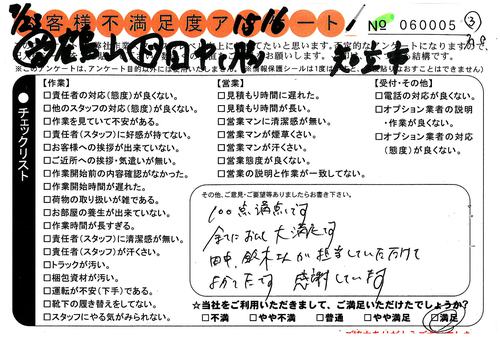 7/23
お客様不満足度アンケート!
1516
No 060005
③
※このアンケートは、アンケート目的以外には使用いたしません。
チェックリスト
【作業】
□責任者の対応(態度)が良くない。
□他のスタッフの対応(態度)が良くない。
□作業を見ていて不安がある。
□責任者(スタッフ)に好感が持てない。
□お客様への挨拶が出来ていない。
□ご近所への挨拶・気遣いが無い。
□作業開始前の内容確認がなかった。
□作業開始時間が遅れた。
□荷物の取り扱いが雑である。
□お部屋の養生が出来ていない。
□作業時間が長すぎる。
□責任者(スタッフ)に清潔感が無い。
□責任者(スタッフ)が汗くさい。
□トラックが汚い。
□梱包資材が汚い。
□運転が不安(下手)である。
□靴下の履き替えをしてない。
□スタッフにやる気がみられない。
【営業】
□見積もり時間に遅れた。
□見積もり時間が長い。
□営業マンに清潔感が無い。
□営業マンが煙草くさい。
□営業マンが汗くさい。
□営業態度が良くない。
□営業の説明と作業が一致してない。
【受付・その他】
□電話の対応が良くない。
□オプション業者の説明
・作業が良くない。
□オプション業者の対応
(態度)が良くない。
その他、ご意見・ご要望等ありましたらお書き下さい。
100点満点です
全てにおいて大満足です
田中、鈴木さんが担当していただけて
よかったです 感謝しています
☆当社をご利用いただきまして、ご満足いただけたでしょうか?
□不満 □やや不満 □普通 □やや満足 □満足